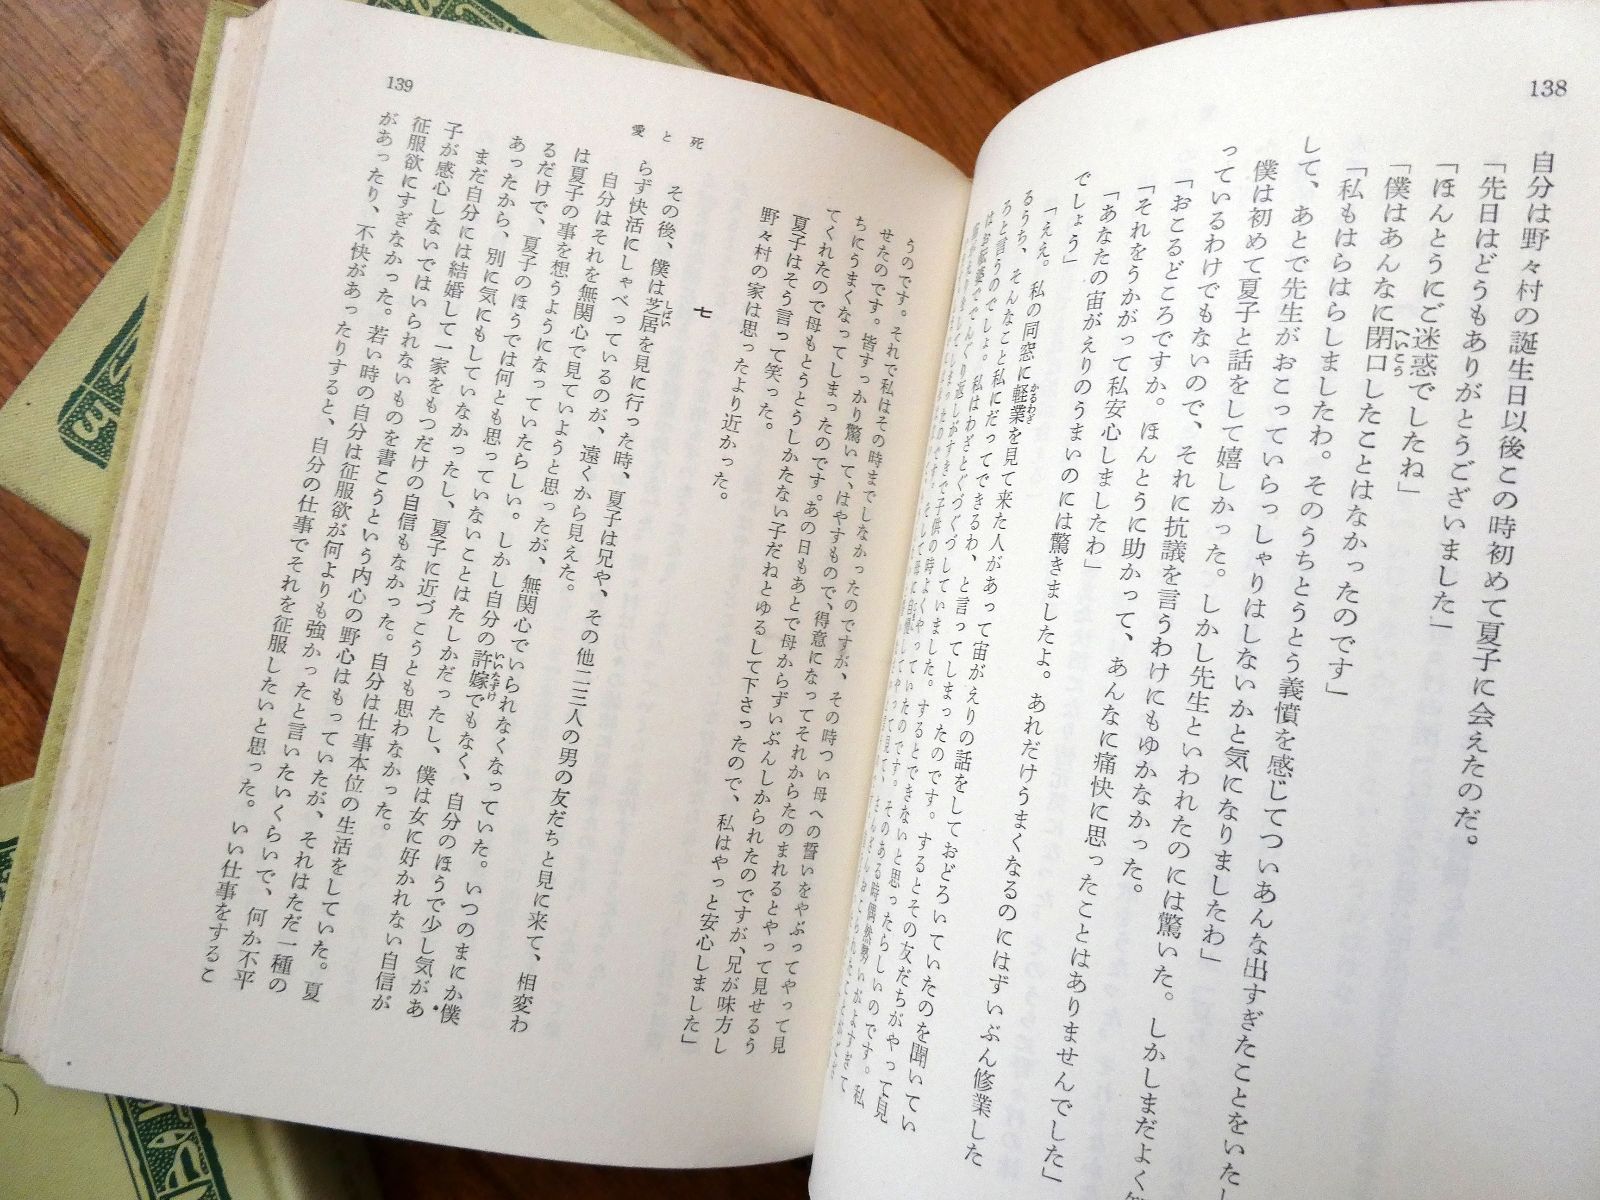 138
自分は野々村の誕生日以後この時初めて夏子に会えたのだ。
「先日はどうもありがとうございました」
「ほんとうにご迷惑でしたね」
「僕はあんなに閉口したことはなかったのです」
へいこう
「私もはらはらしましたわ。そのうちとうとう義憤を感じてついあんな出すぎたことをいたし
して、あとで先生がおこっていらっしゃりはしないかと気になりましたわ」
僕は初めて夏子と話をして嬉しかった。しかし先生といわれたのには驚いた。しかしまだよく
っているわけでもないので、それに抗議を言うわけにもゆかなかった。
「おこるどころですか。ほんとうに助かって、あんなに痛快に思ったことはありませんでした」
「それをうかがって私安心しましたわ」
「あなたの宙がえりのうまいのには驚きましたよ。あれだけうまくなるのにはずいぶん修業した
でしょう」
「ええ。私の同窓に軽業を見て来た人があって宙がえりの話をしておどろいていたのを聞いてい
かるわざ
るうち、そんなこと私にだってできるわ、と言ってしまったのです。するとその友だちがやって見
ろと言うのでしょ。私はわざとぐづぐづしていました。するとできないと思ったらしいのです。私
はお転婆ででんぐり返しがすきで子供の時よくやっていたのです。そのある時偶然勢いがよすぎて
139
愛と死
うのです。それで私はその時までしなかったのですが、その時つい母への誓いをやぶってやって見
せたのです。皆すっかり驚いて、はやすもので、得意になってそれからたのまれるとやって見せるう
ちにうまくなってしまったのです。あの日もあとで母からずいぶんしかられたのですが、兄が味方し
てくれたので母もとうとうしかたない子だねとゆるして下さったので、私はやっと安心しました」
夏子はそう言って笑った。
野々村の家は思ったより近かった。
七
その後、僕は芝居を見に行った時、夏子は兄や、その他二三人の男の友だちと見に来て、相変わ
しばい
らず快活にしゃべっているのが、遠くから見えた。
自分はそれを無関心で見ていようと思ったが、無関心でいられなくなっていた。いつのまにか僕
は夏子の事を想うようになっていたらしい。しかし自分の許嫁でもなく、自分のほうで少し気があ
いいなずけ
るだけで、夏子のほうでは何とも思っていないことはたしかだったし、僕は女に好かれない自信が
あったから、別に気にもしていなかったし、夏子に近づこうとも思わなかった。
まだ自分には結婚して一家をもつだけの自信もなかった。自分は仕事本位の生活をしていた。夏
子が感心しないではいられないものを書こうという内心の野心はもっていたが、それはただ一種の
征服欲にすぎなかった。若い時の自分は征服欲が何よりも強かったと言いたいくらいで、何か不平
があったり、不快があったりすると、自分の仕事でそれを征服したいと思った。いい仕事をするこ